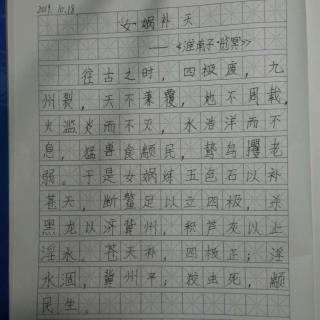 2019.10.18
女娲补天
——《淮南子·览冥》
往古之时，四极废，九
州裂，天不兼覆，地不周载，
火滥炎而不灭，水浩洋而不
息，猛兽食颛民，鸷鸟攫老
弱。于是女娲炼五色石以补
苍天，断鳌足以立四极，杀
黑龙以济冀州，积芦灰以止
淫水。苍天补，四极正；淫
水涸，冀州平；狡虫死，颛
民生。